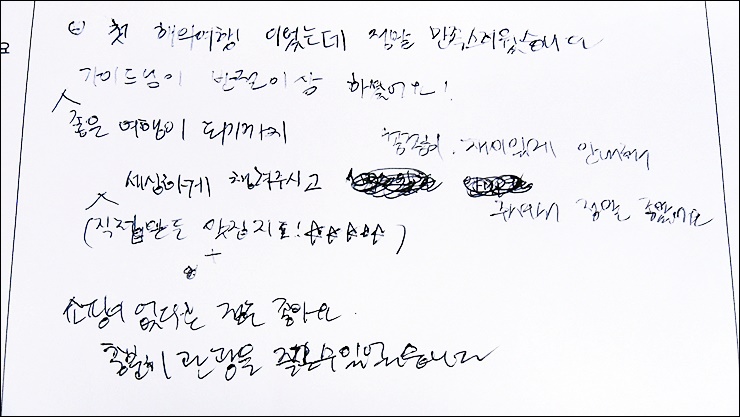 첫 해외여행 이었는데 정말 만족스러웠습니다
가이드님이 반절이상 하셨어요!
좋은 여행이 되기까지
꼼꼼히. 재미있게 안내해
세심하게 챙겨주시고
주셔서 정말 좋았어요
(직접만든 맛집지도!☆☆☆☆☆)
쇼핑이 없다는 점은 좋아요
충분히 관광을 즐길수있었습니다